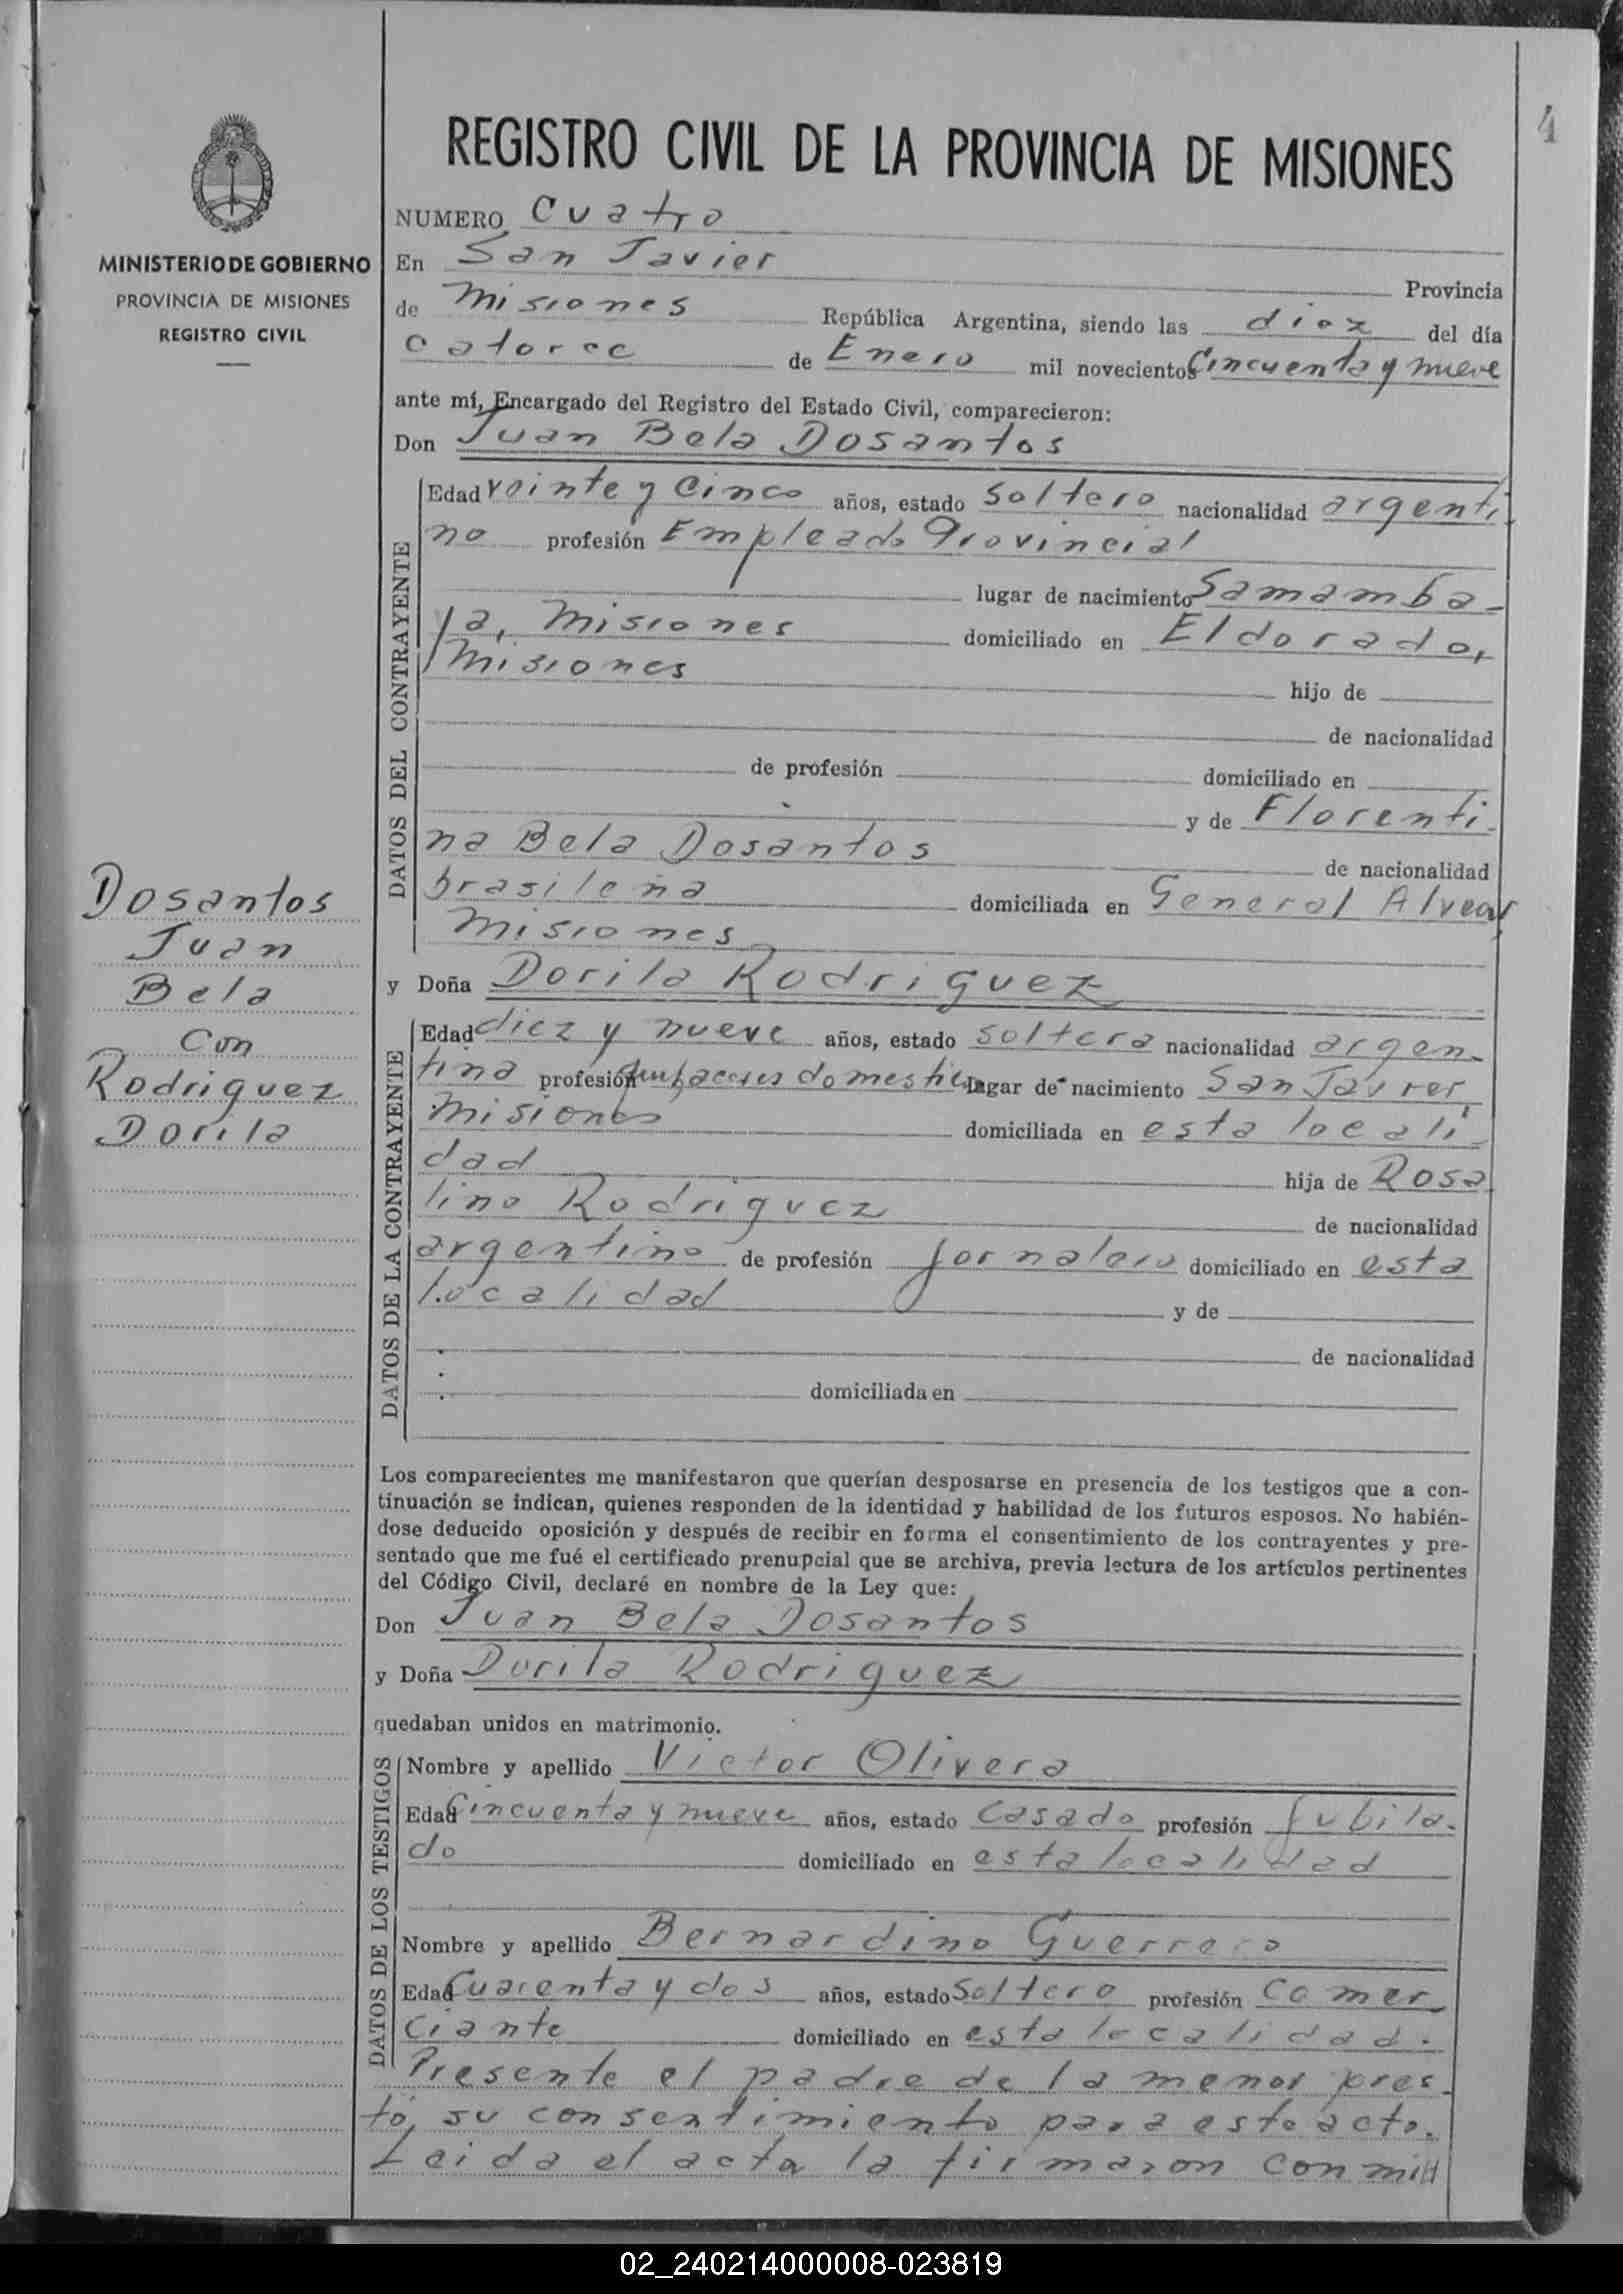 4
REGISTRO CIVIL DE LA PROVINCIA DE MISIONES
MINISTERIO DE GOBIERNO
PROVINCIA DE MISIONES
REGISTRO CIVIL
NUMERO Cuatro
En San Javier Provincia
de Misiones República Argentina, siendo las diez del día
catorce de Enero mil novecientos Cincuenta y nueve
ante mí, Encargado del Registro del Estado Civil, comparecieron:
Don Juan Bela Dosantos
DATOS DEL CONTRAYENTE
Edad veinte y cinco años, estado soltero nacionalidad argenti
no profesión Empleado Provincial
lugar de nacimiento Samamba-
ya, Misiones domiciliado en Eldorado,
Misiones hijo de
de nacionalidad
de profesión domiciliado en
y de Florenti
na Bela Dosantos de nacionalidad
brasileña domiciliada en General Alvear
Misiones
Dosantos
Juan
Bela
Con
Rodriguez
Dorila
y Doña Dorila Rodriguez
DATOS DE LA CONTRAYENTE
Edad diez y nueve años, estado soltera nacionalidad argen-
tina profesión domestic lugar de nacimiento San Javier
Misiones domiciliada en esta locali
dad hija de Rosa
lino Rodriguez de nacionalidad
argentino de profesión jornalero domiciliado en esta
localidad y de
de nacionalidad
domiciliada en
Los comparecientes me manifestaron que querían desposarse en presencia de los testigos que a con-
tinuación se indican, quienes responden de la identidad y habilidad de los futuros esposos. No habién-
dose deducido oposición y después de recibir en forma el consentimiento de los contrayentes y pre-
sentado que me fué el certificado prenupcial que se archiva, previa lectura de los artículos pertinentes
del Código Civil, declaré en nombre de la Ley que:
Don Juan Bela Dosantos
y Doña Dorila Rodriguez
quedaban unidos en matrimonio.
DATOS DE LOS TESTIGOS
Nombre y apellido Victor Olivera
Edad Cincuenta y nueve años, estado casado profesión jubila-
do domiciliado en esta localidad
Nombre y apellido Bernardino Guerrero
Edad Cuarenta y dos años, estado soltero profesión comer
ciante domiciliado en esta localidad.
Presente el padre de la menor pres-
tó, su consentimiento para este acto.
Leida el acta la firmaron con mi
02_240214000008-023819